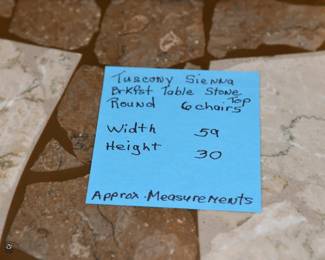 Tuscany Sienna
Brkfst Table Stone Top
Round 6 chairs
Width 59
Height 30
Approx. Measurements